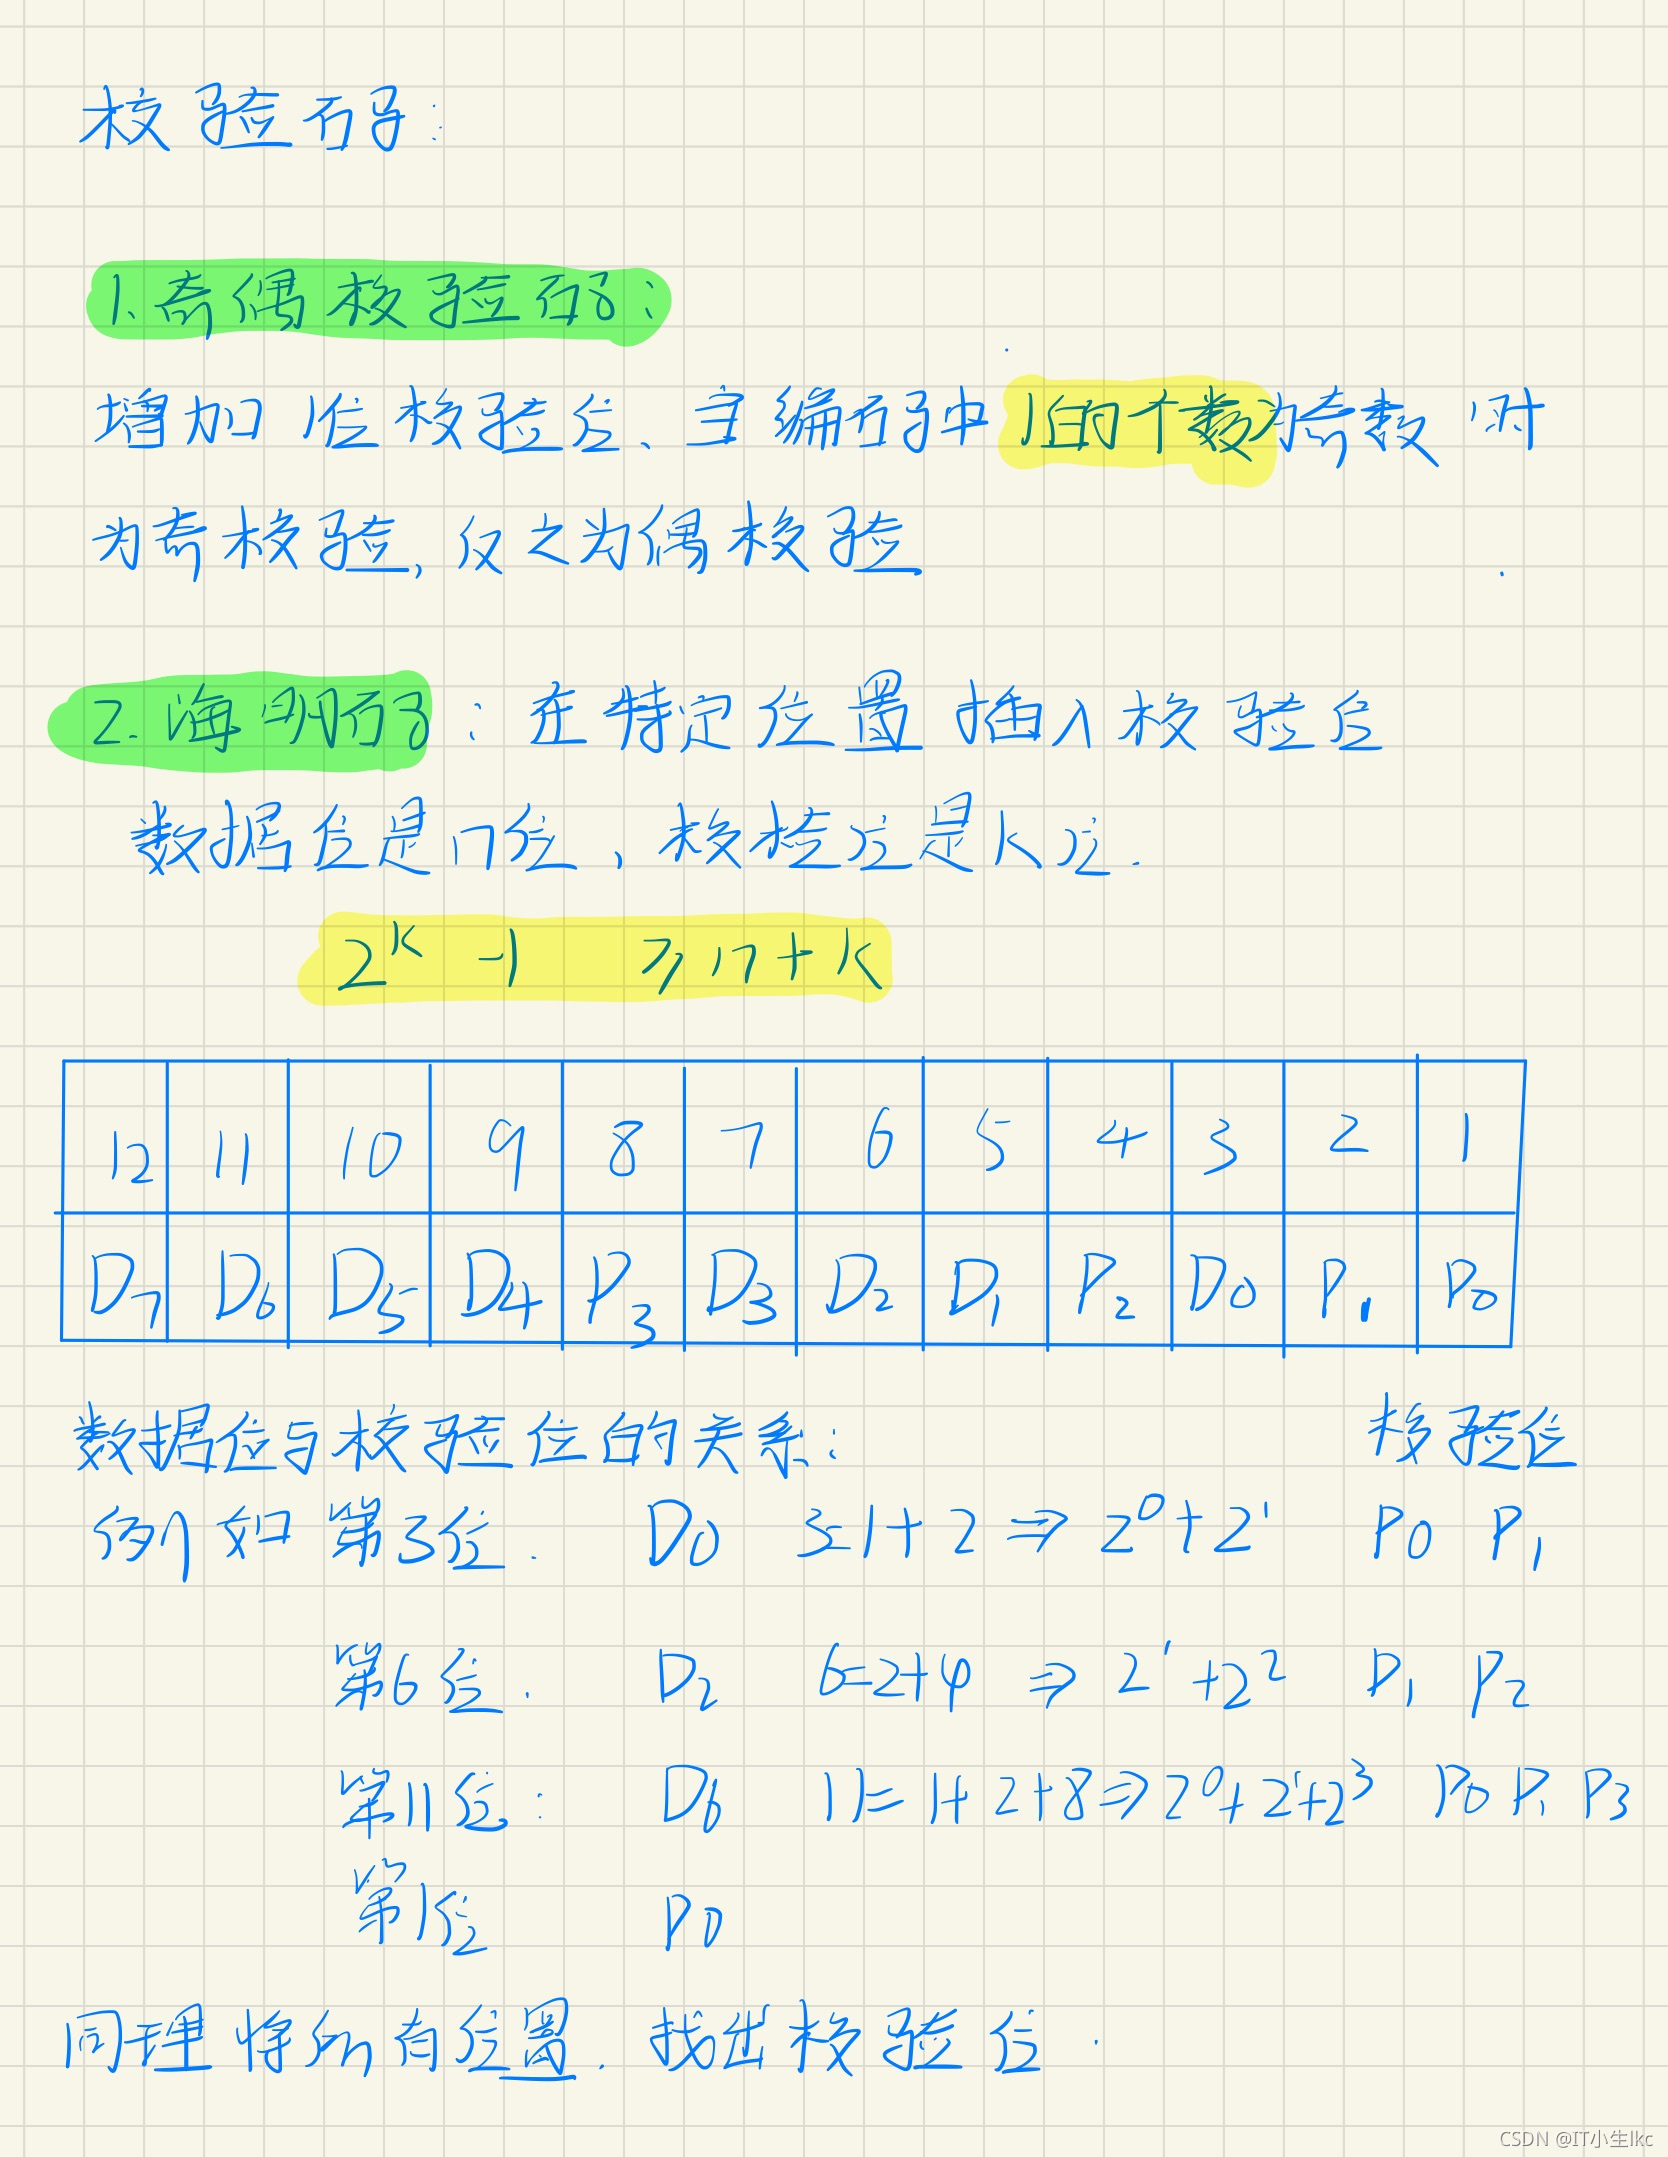 校验码:
1.奇偶校验码:
增加1位校验位、主编码中1的个数为奇数时
为奇校验,反之为偶校验
2.海明码:在特定位置插入校验位
数据位是n位,校检位是k位.
2^k -1 ≥ n+k
12 11 10 9 8 7 6 5 4 3 2 1
D7 D6 D5 D4 P3 D3 D2 D1 P2 D0 P1 P0
数据位与校验位的关系: 校验位
例如第3位. D0 3=1+2 ⇒ 2^0+2^1 P0 P1
第6位. D2 6=2+4 ⇒ 2^1+2^2 P1 P2
第11位: D6 11=1+2+8⇒2^0+2^1+2^3 P0 P1 P3
第1位 P0
同理将所有位置.找出校验位.
CSDN @IT小生lkc